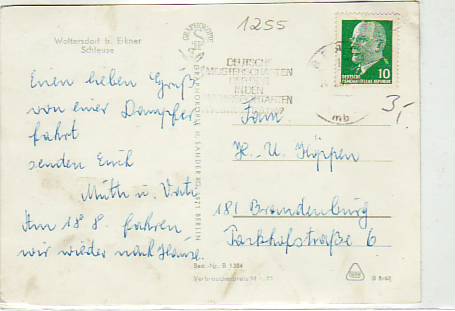 Woltersdorf b. Erkner
Schleuse
1255
DEUTSCHE
MEISTERSCHAFTEN
IN DEN
10
DEUTSCHE
DEMOKRATISCHE REPUBLIK
3,-
mb
Einen lieben Gruß
von einer Dampfer
fahrt
senden Euch
Mutti u. Vati
Am 18. 8. fahren
wir wieder nach Hause.
Fam.
H. U. Köppen
181 Brandenburg
Parkhofstraße 6
GRAPHOKOPIE H. SANDER KG, 1071 BERLIN
Best.-Nr. B 1384